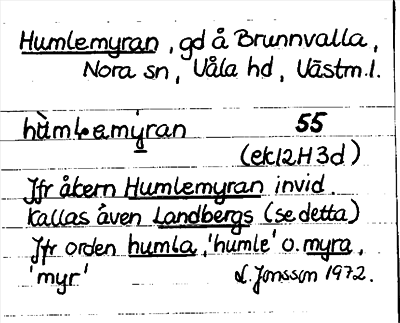 Humlemyran, gd å Brunnvalla,
Nora sn, Våla hd, Västm.l.
hùmlemýran 55
(ek 12H3d)
Jfr åkern Humlemyran invid.
Kallas även Landbergs (se detta)
Jfr orden humla, 'humle' o. myra,
'myr' L. Jonsson 1972.